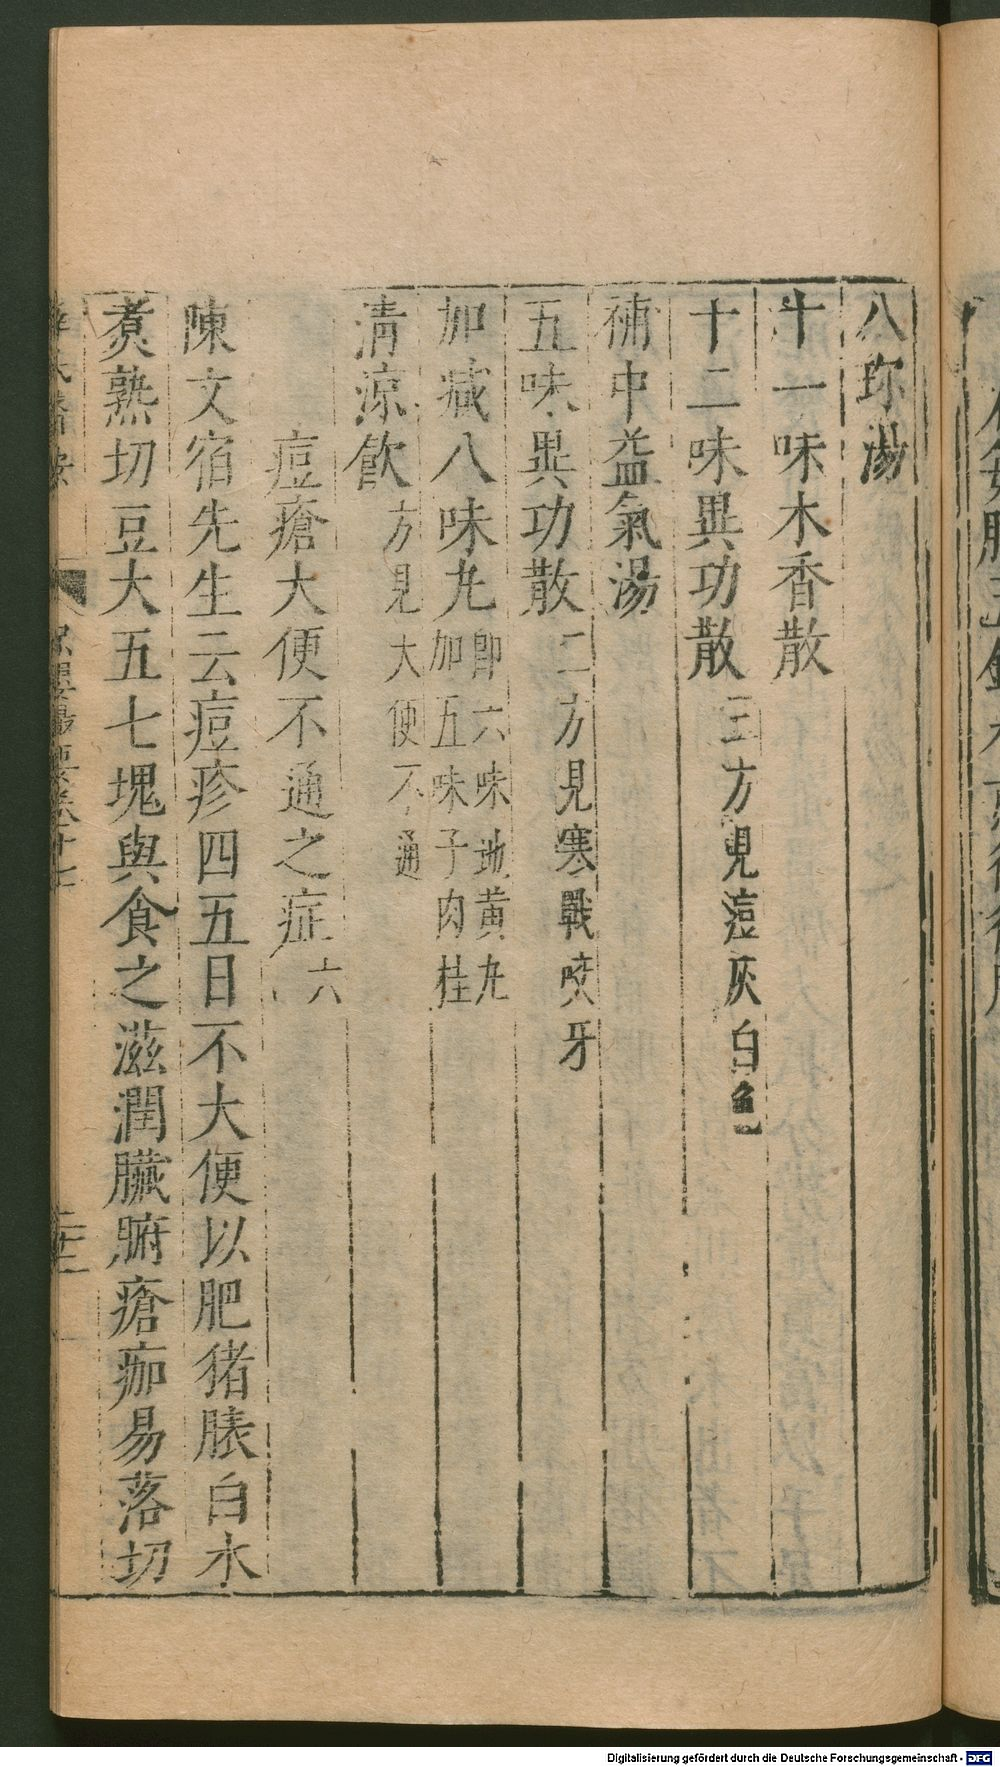 八珎湯
十一味木香散
十二味異功散三方見痘灰白色
補中益氣湯
五味異功散二方見寒戰咬牙
加減八味丸即六味地黄丸加五味子肉桂
清凉飲方見大便不通
痘瘡大便不通之症六
陳文宿先生云痘疹四五日不大便以肥猪䏶白水
煮熟切豆大五七塊與食之滋潤臟腑瘡痂易落切
Digitalisierung gefördert durch die Deutsche Forschungsgemeinschaft - DFG